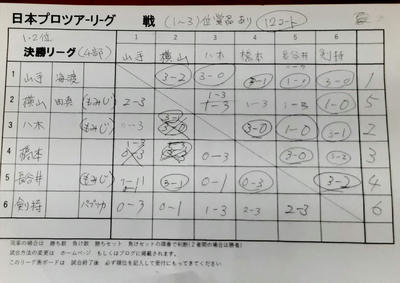 日本プロツアーリーグ 戦 (1~3)位賞品あり 12コート
1.2位
決勝リーグ(4部) 1 2 3 4 5 6
山手 横山 八木 橋本 長谷井 剣持
1 山手 3-2 3-0 3-1 1-0 3-0 1
2 横山 (もみじ) 2-3 1-3 1-3 1-3 1-0 5
3 八木 (もみじ) 0-3 3-0 1-0 3-1 2
4 橋本 1-3 0-3 3-0 3-2 3
5 長谷井 (もみじ) 3-1 0-1 0-3 3-2 4
6 剣持 パプリカ 0-3 0-1 1-3 2-3 2-3 6
同率の場合は 勝ち数 負け数 勝ちセット 負けセットの順番で判断(2者間の場合は勝者)
試合方法の変更は ホームページ もしくはブログに掲載されます。
このリーグ表ボードは 試合終了後 必ず順位を記入して受付にもってきてください